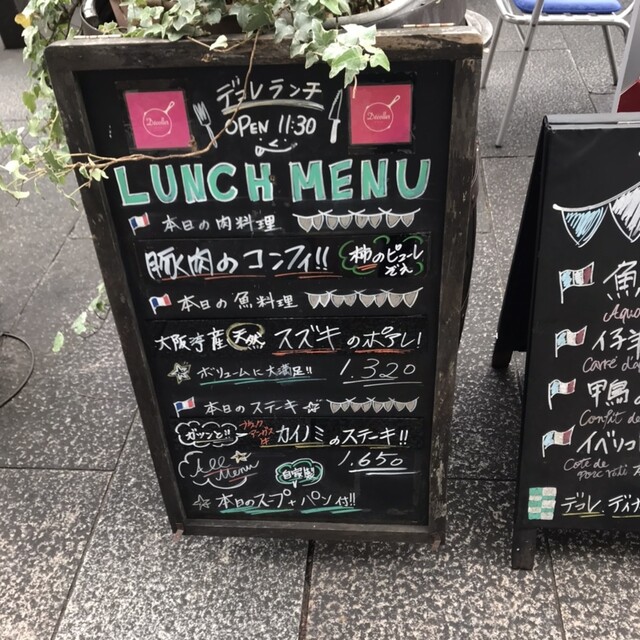 デコレランチ
OPEN 11:30
LUNCH MENU
本日の肉料理
豚肉のコンフィ!! 柿のピューレ
ぞえ
本日の魚料理
大阪湾産 天然 スズキのポアレ!
ボリュームに大満足!! 1.320
本日のステーキ
ガツンと!! ブラック
アンガス
牛 カイノミのステーキ!!
1.650
All
Menu
自家製
本日のスープ+パン付!!
魚
仔羊
Carré d'a
甲鳥の
Confit de
イベリコ
Côte de
porc
デコレ ディナ